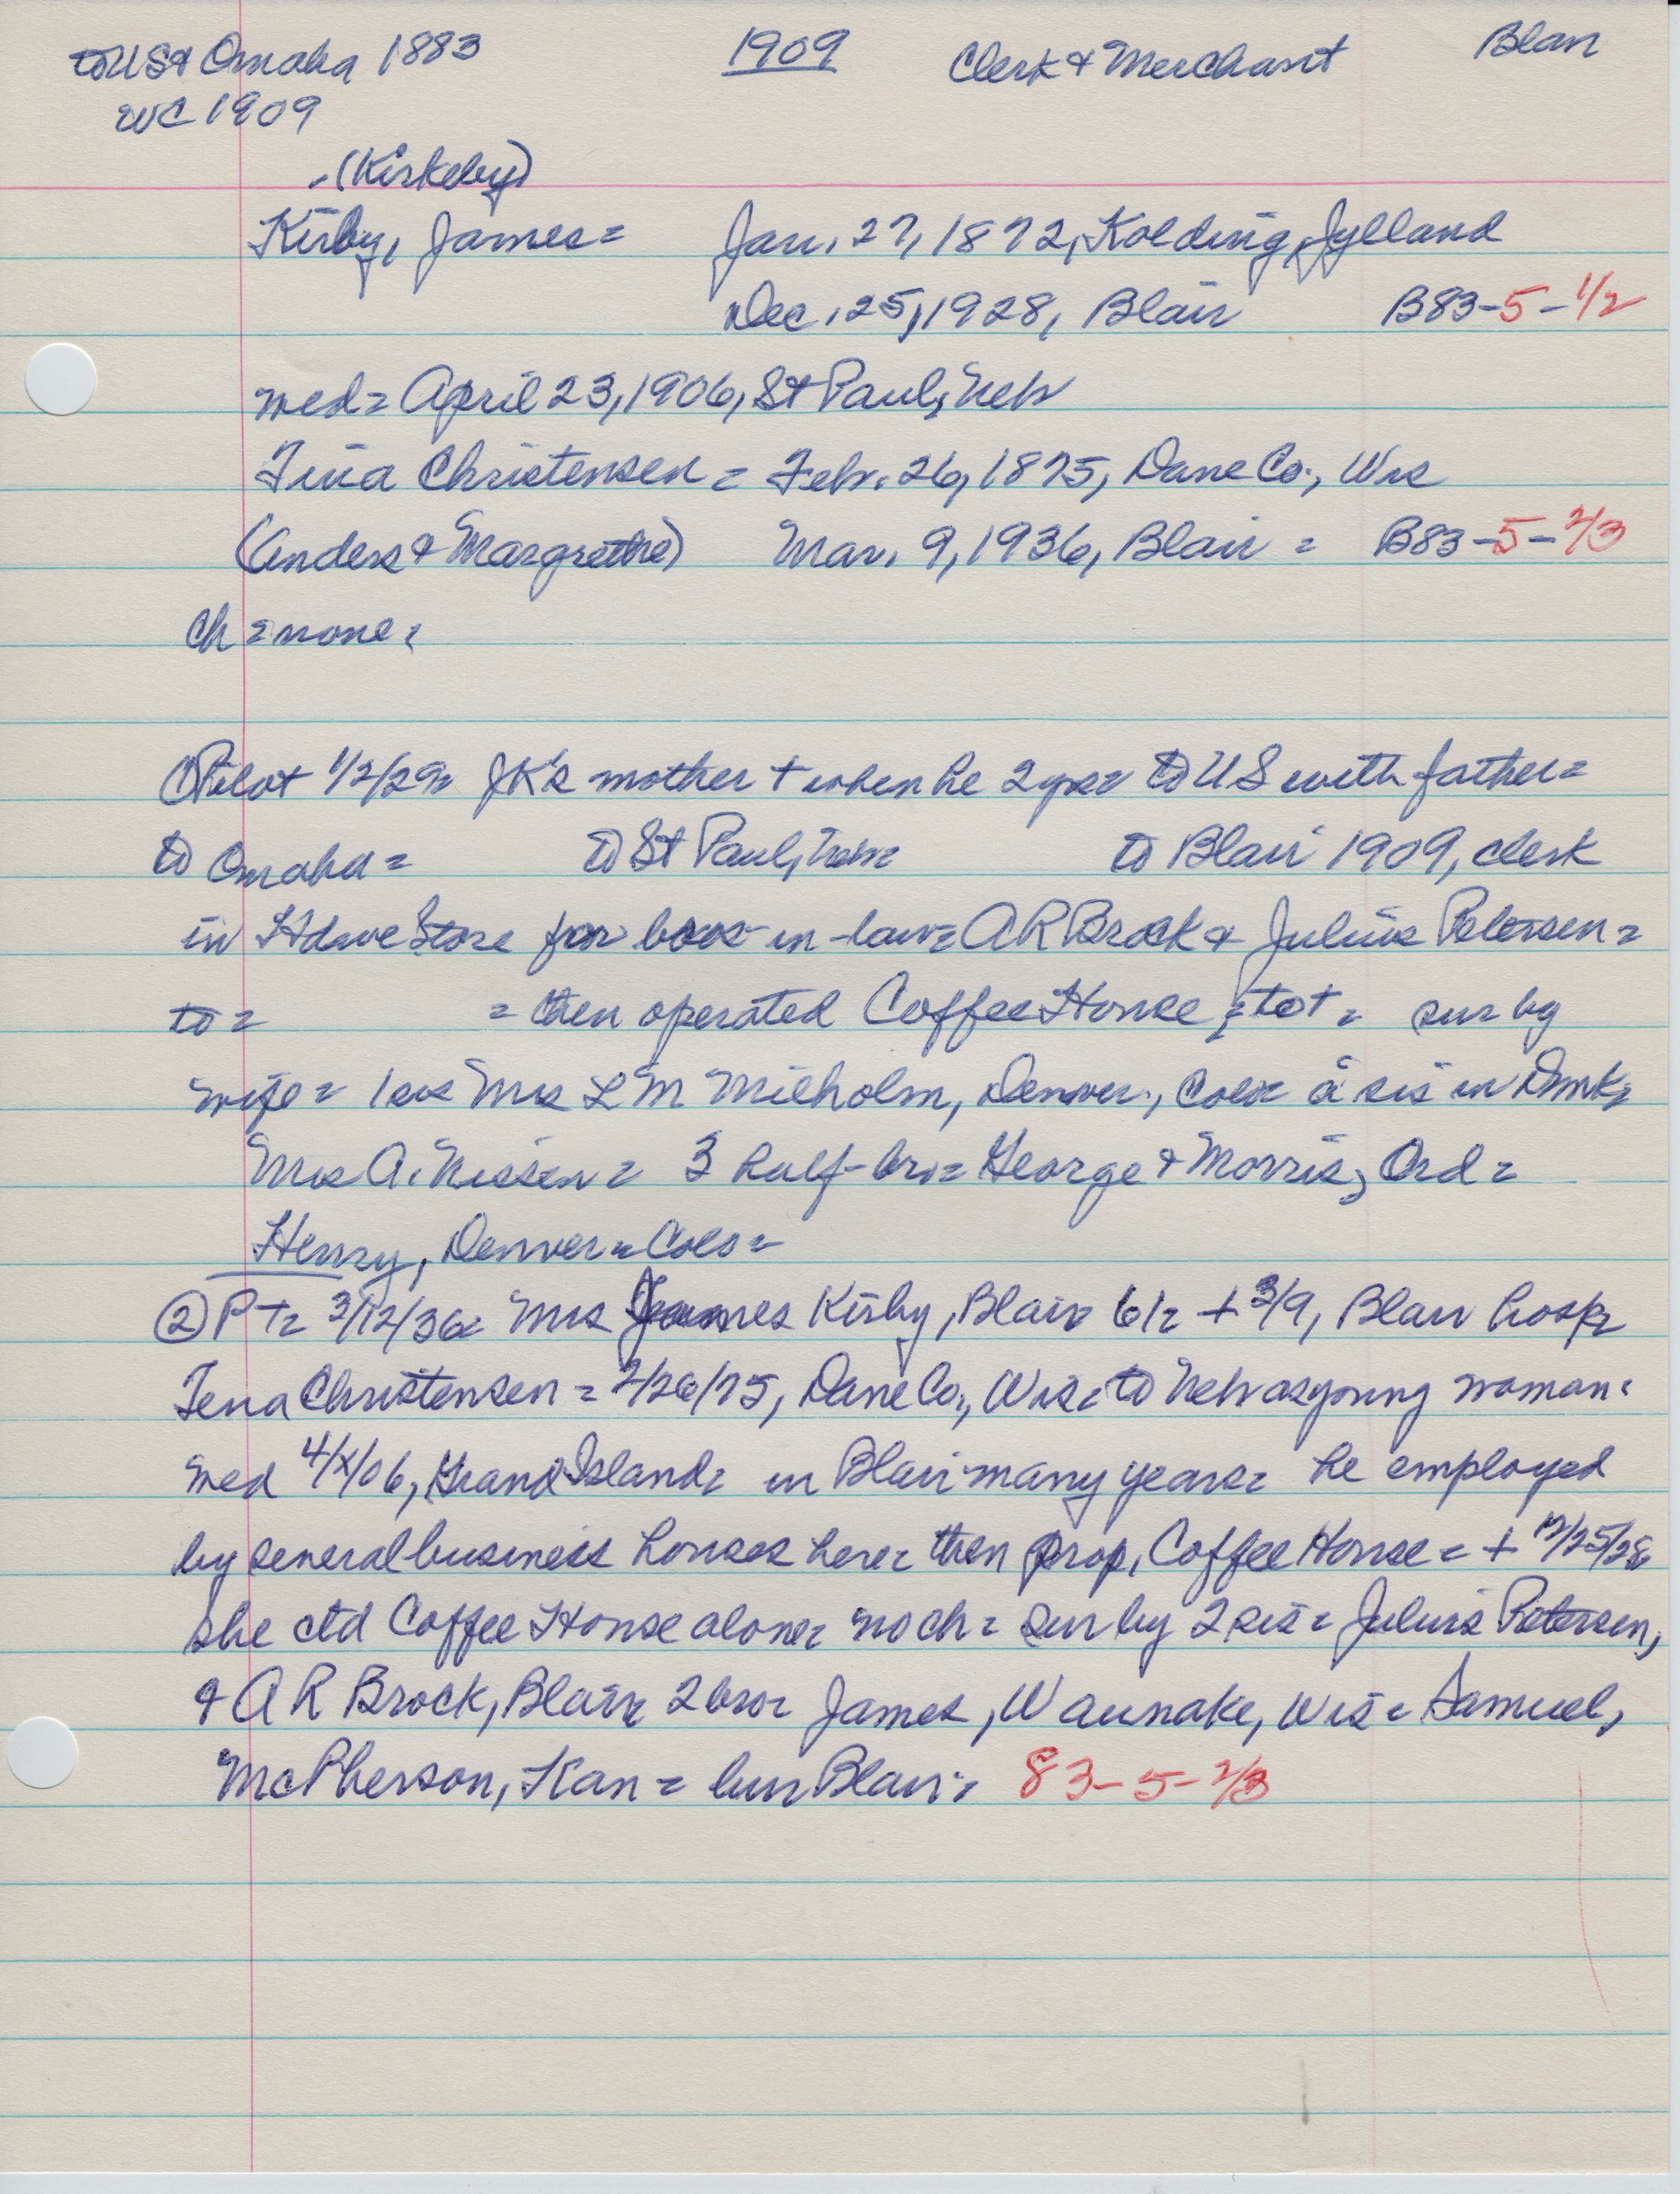 to US & Omaha 1883 1909 Clerk & Merchant Blair
WC 1909
(Kirkeby)
Kirby, James = Jan. 27, 1872, Kolding, Jylland
Dec. 25, 1928, Blair B83-5-1/2
wed = April 23, 1906, St Paul, Neb
Tina Christensen = Feb. 26, 1875, Dane Co., Wis
(Anders & Margrethe) Mar. 9, 1936, Blair = B83-5-2/3
ch = none =
① Pilot 1/2/29 = JK's mother + when he 2 yrs = to US with father =
to Omaha = to St Paul, Neb = to Blair 1909, clerk
in Hdwe Store for bros-in-law = A R Brock & Julius Petersen =
to = = then operated Coffee House, to + = sur by
wife = 1 sis Mrs L M Milholm, Denver, Colo = a sis in Dmk,
Mrs A. Nissen = 3 half-bro = George & Morris, Ord =
Henry, Denver = Colo =
② P T = 3/12/36 = Mrs James Kirby, Blair 61 = + 3/9, Blair hosp =
Tena Christensen = 2/26/75, Dane Co., Wis = to Neb as young woman =
wed 4/x/06, Grand Island = in Blair many years = he employed
by several business houses here = then prop. Coffee House = + 12/25/28
she ctd Coffee House alone = no ch = sur by 2 sis = Julius Petersen,
& A R Brock, Blair = 2 bro = James, Waunake, Wis = Samuel,
McPherson, Kan = bur Blair = 83-5-2/3